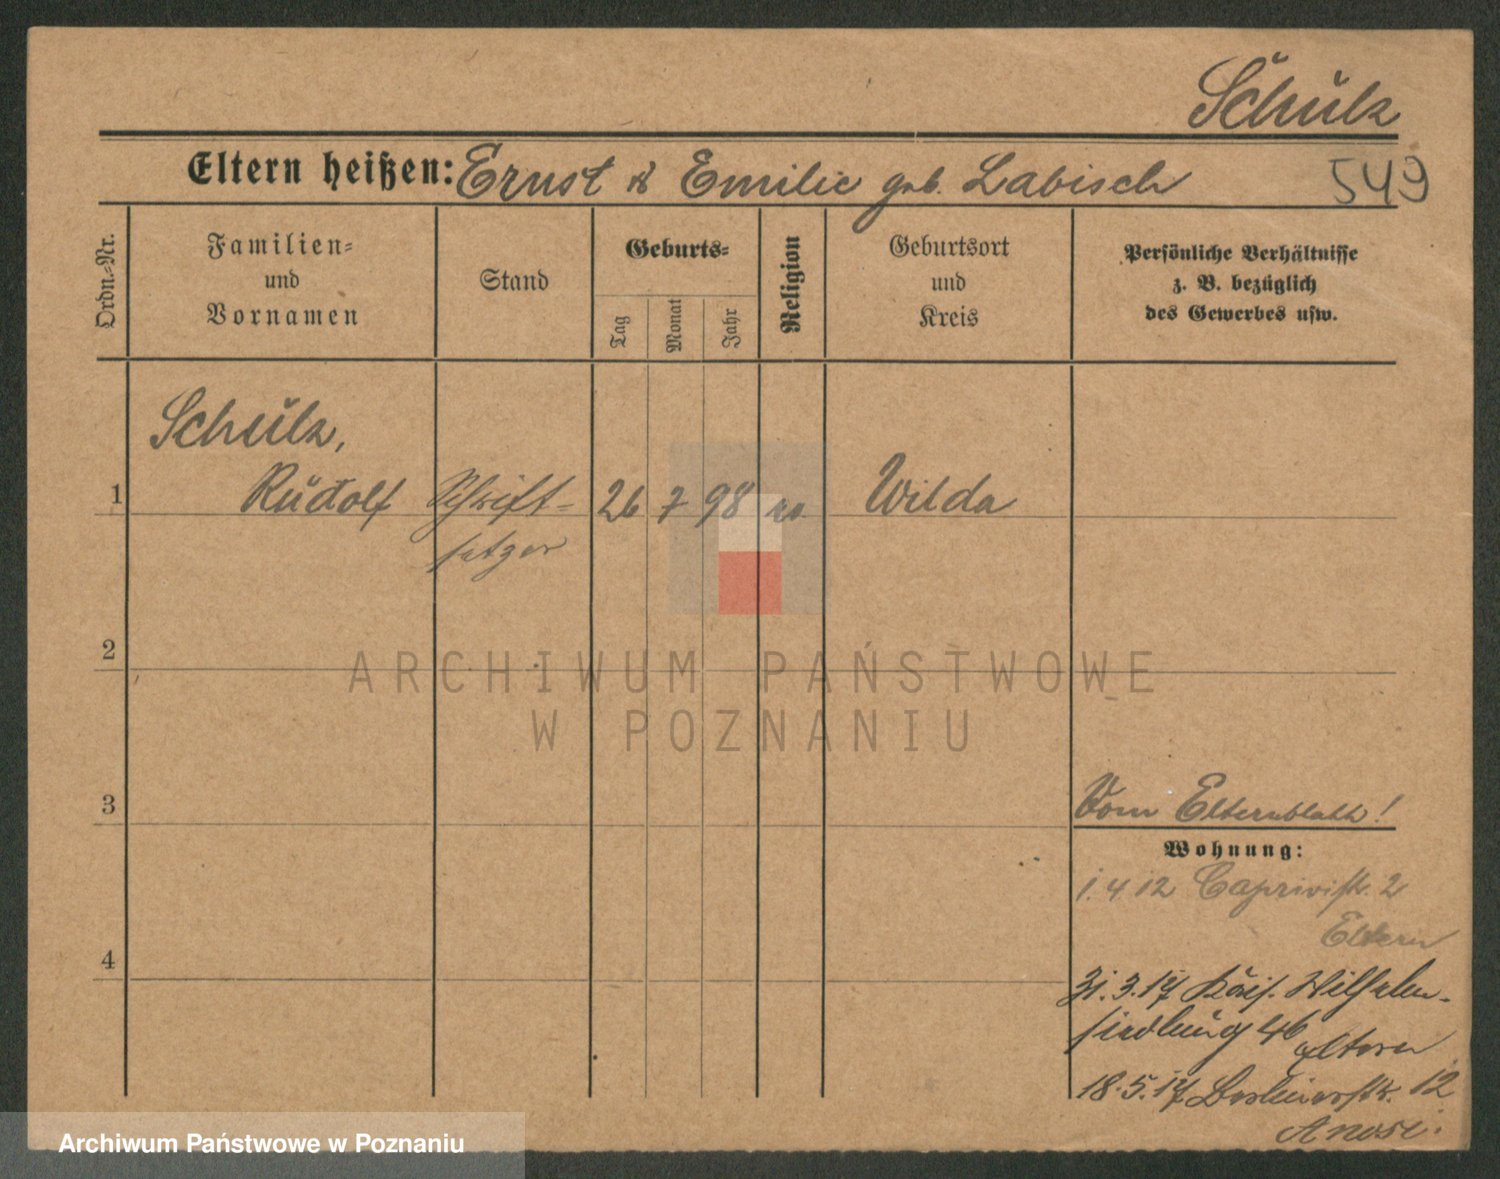 Schulz
Eltern heißen: Ernst & Emilie geb. Labisch
549
Ordn.-Nr.
Familien-
und
Vornamen
Stand
Geburts-
Tag
Monat
Jahr
Religion
Geburtsort
und
Kreis
Persönliche Verhältnisse
z. B. bezüglich
des Gewerbes usw.
Schulz,
1 Rudolf Schrift- 26 7 98 Wilda
setzer
2
3
Vom Elternblatt!
Wohnung:
1.4 12 Caprivistr. 2
Eltern
4
31.3.17 Kais. Wilhelm-
siedlung 46
Eltern
18.5.17 Berlinerstr. 12
ARCHIWUM PAŃSTWOWE
W POZNANIU
Archiwum Państwowe w Poznaniu